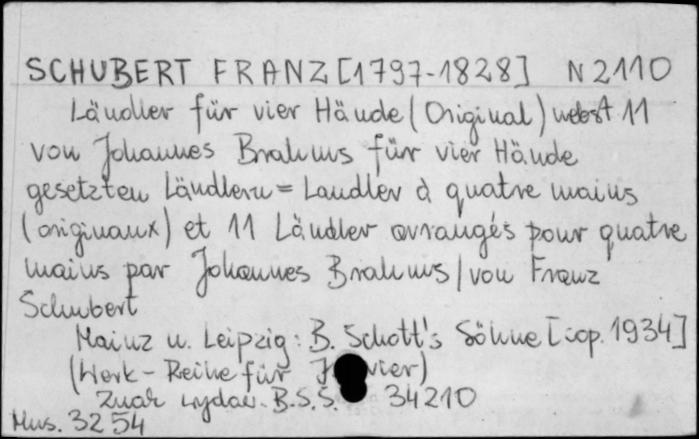 SCHUBERT FRANZ [1797-1828] N 2110
Ländler für vier Hände (Original) nebst 11
von Johannes Brahms für vier Hände
gesetzten Ländlern = Landler à quatre mains
(originaux) et 11 Ländler arrangés pour quatre
mains par Johannes Brahms / von Franz
Schubert
Mainz u. Leipzig: B. Schott's Söhne [cop. 1934]
(Werk-Reihe für
Znak wydaw. B.S.S. 34210
Mus. 3254